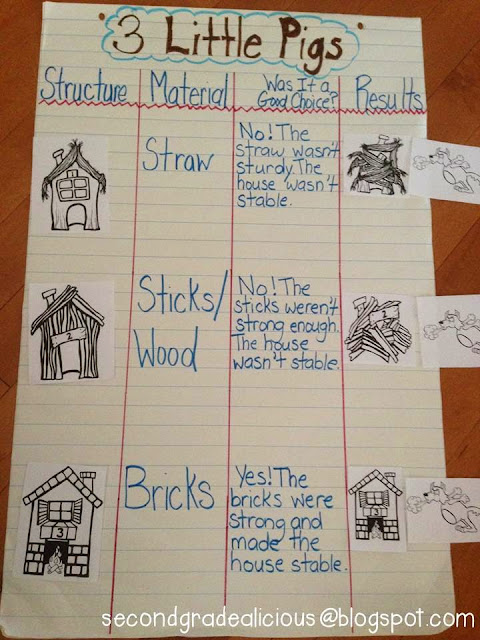 3 Little Pigs
Structure
Material
Was It a
Good Choice?
Results
Straw
No! The
straw wasn't
sturdy. The
house wasn't
stable.
Sticks/
Wood
2
No! The
sticks weren't
strong enough.
The house
wasn't stable.
2
Bricks
3
Yes! The
bricks were
strong and
made the
house stable.
3
secondgradealicious@blogspot.com